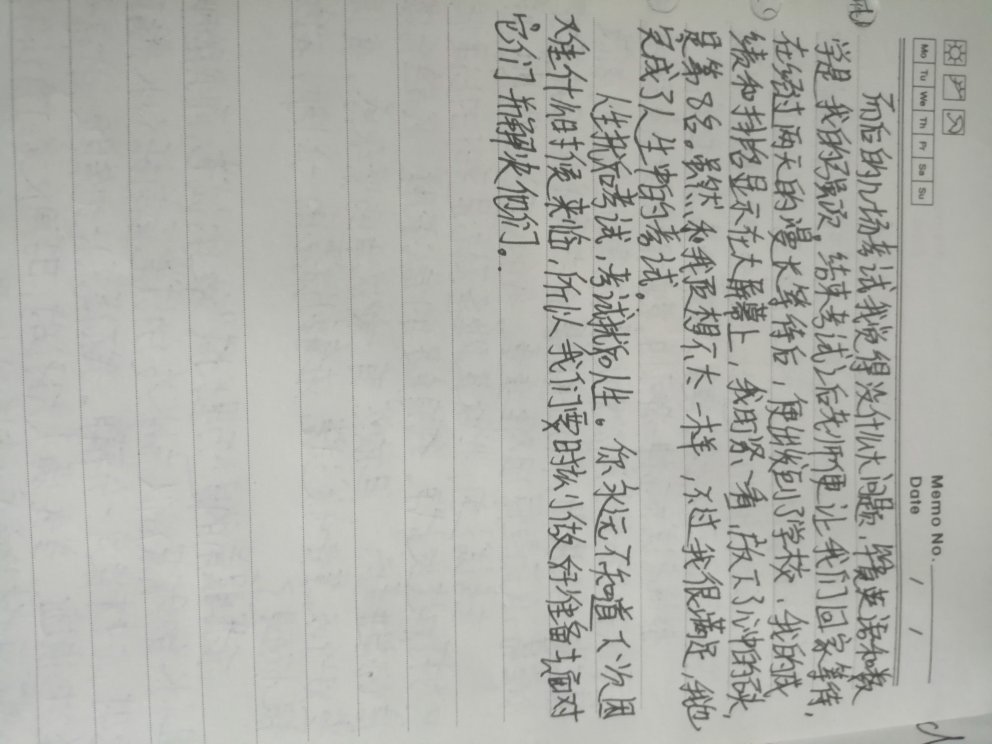 Memo No.
Mo Tu We Th Fr Sa Su
Date / /
而后的几场考试我觉得没什么大问题,毕竟英语和数
学是我的强项。结束考试之后老师便让我们回家等待,
在经过两天的漫长等待后,便出发到了学校,我的成
绩和排名显示在大屏幕上,我用紧一看,放下了心中的石头,
是第8名。虽然和我预想不大一样,不过我很满足,我也
完成了人生中的考试。
人生就如考试,考试就如人生。你永远不知道下次困
难什么时候来临,所以我们要时刻做好准备去面对
它们并解决他们。